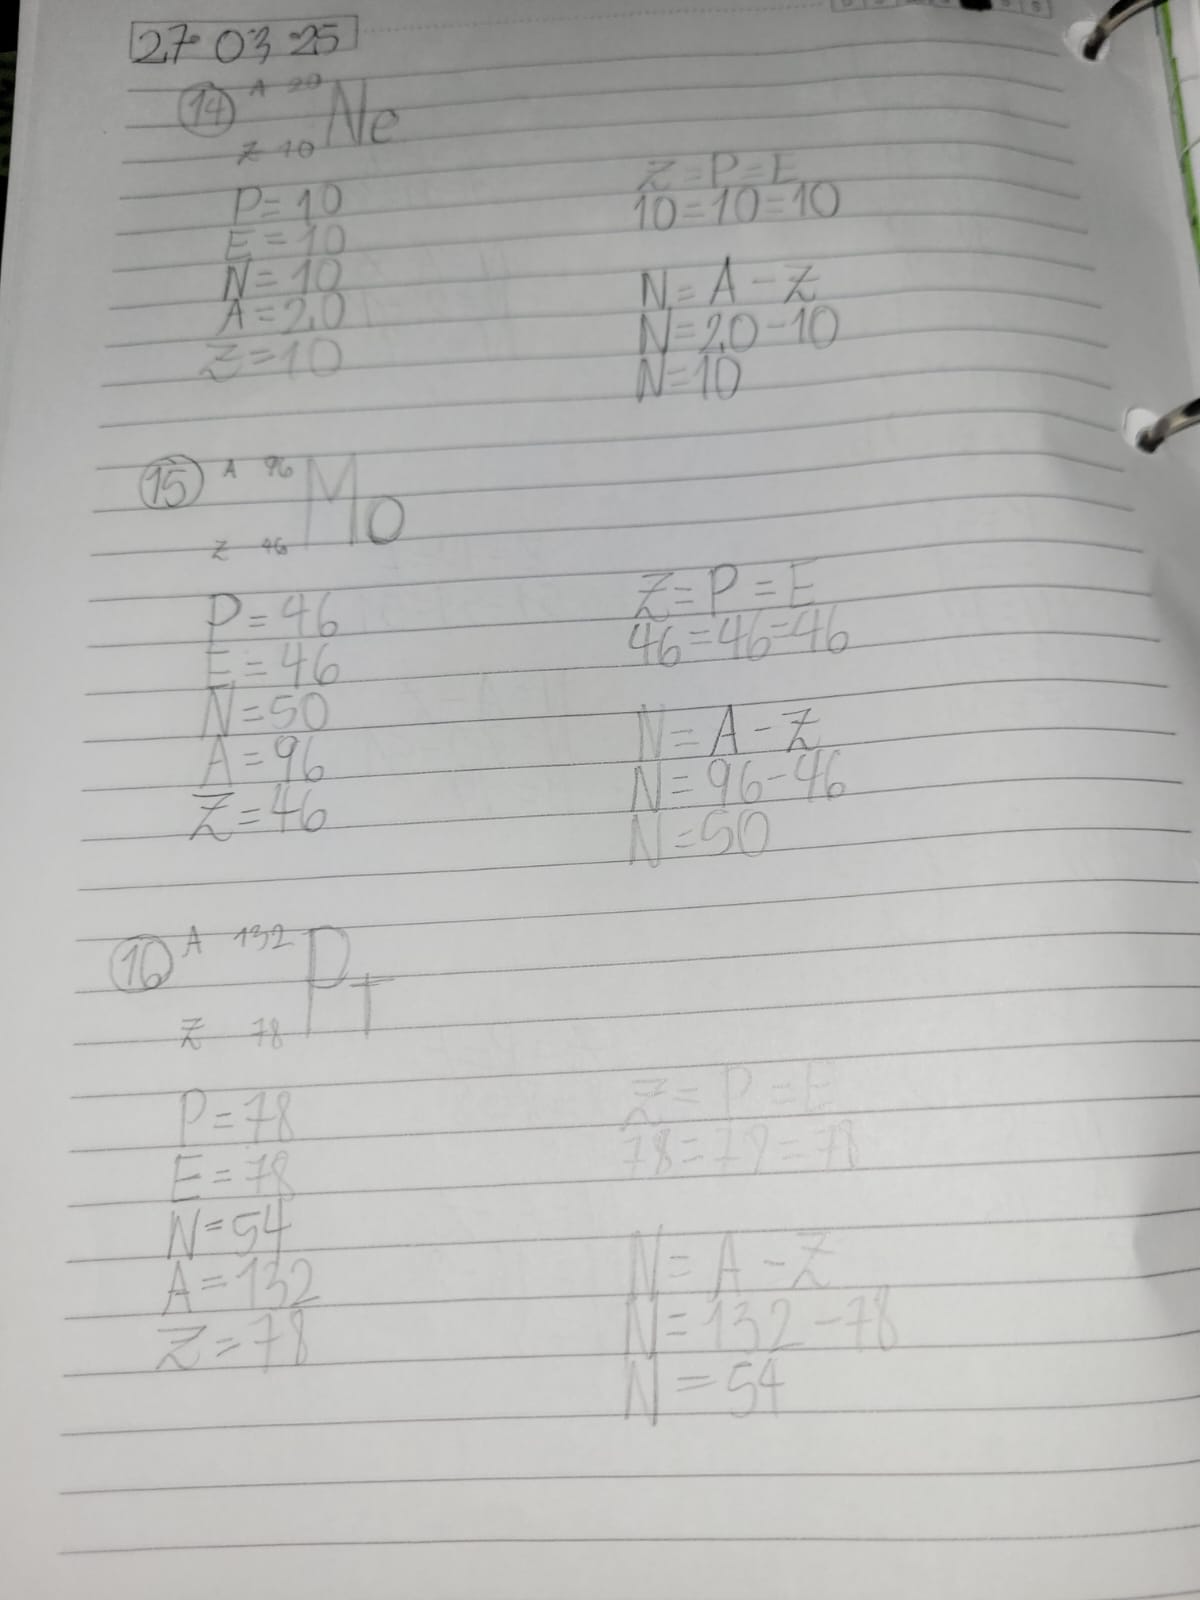 27 03 25
14 A 20 Ne
Z 10
P=10
E=10
N=10
A=20
Z=10
Z=P=E
10=10=10
N=A-Z
N=20-10
N=10
15 A 96 Mo
Z 46
P=46
E=46
N=50
A=96
Z=46
Z=P=E
46=46=46
N=A-Z
N=96-46
N=50
16 A 132 PT
Z 78
P=78
E=78
N=54
A=132
Z=78
Z=P=E
78=78=78
N=A-Z
N=132-78
N=54